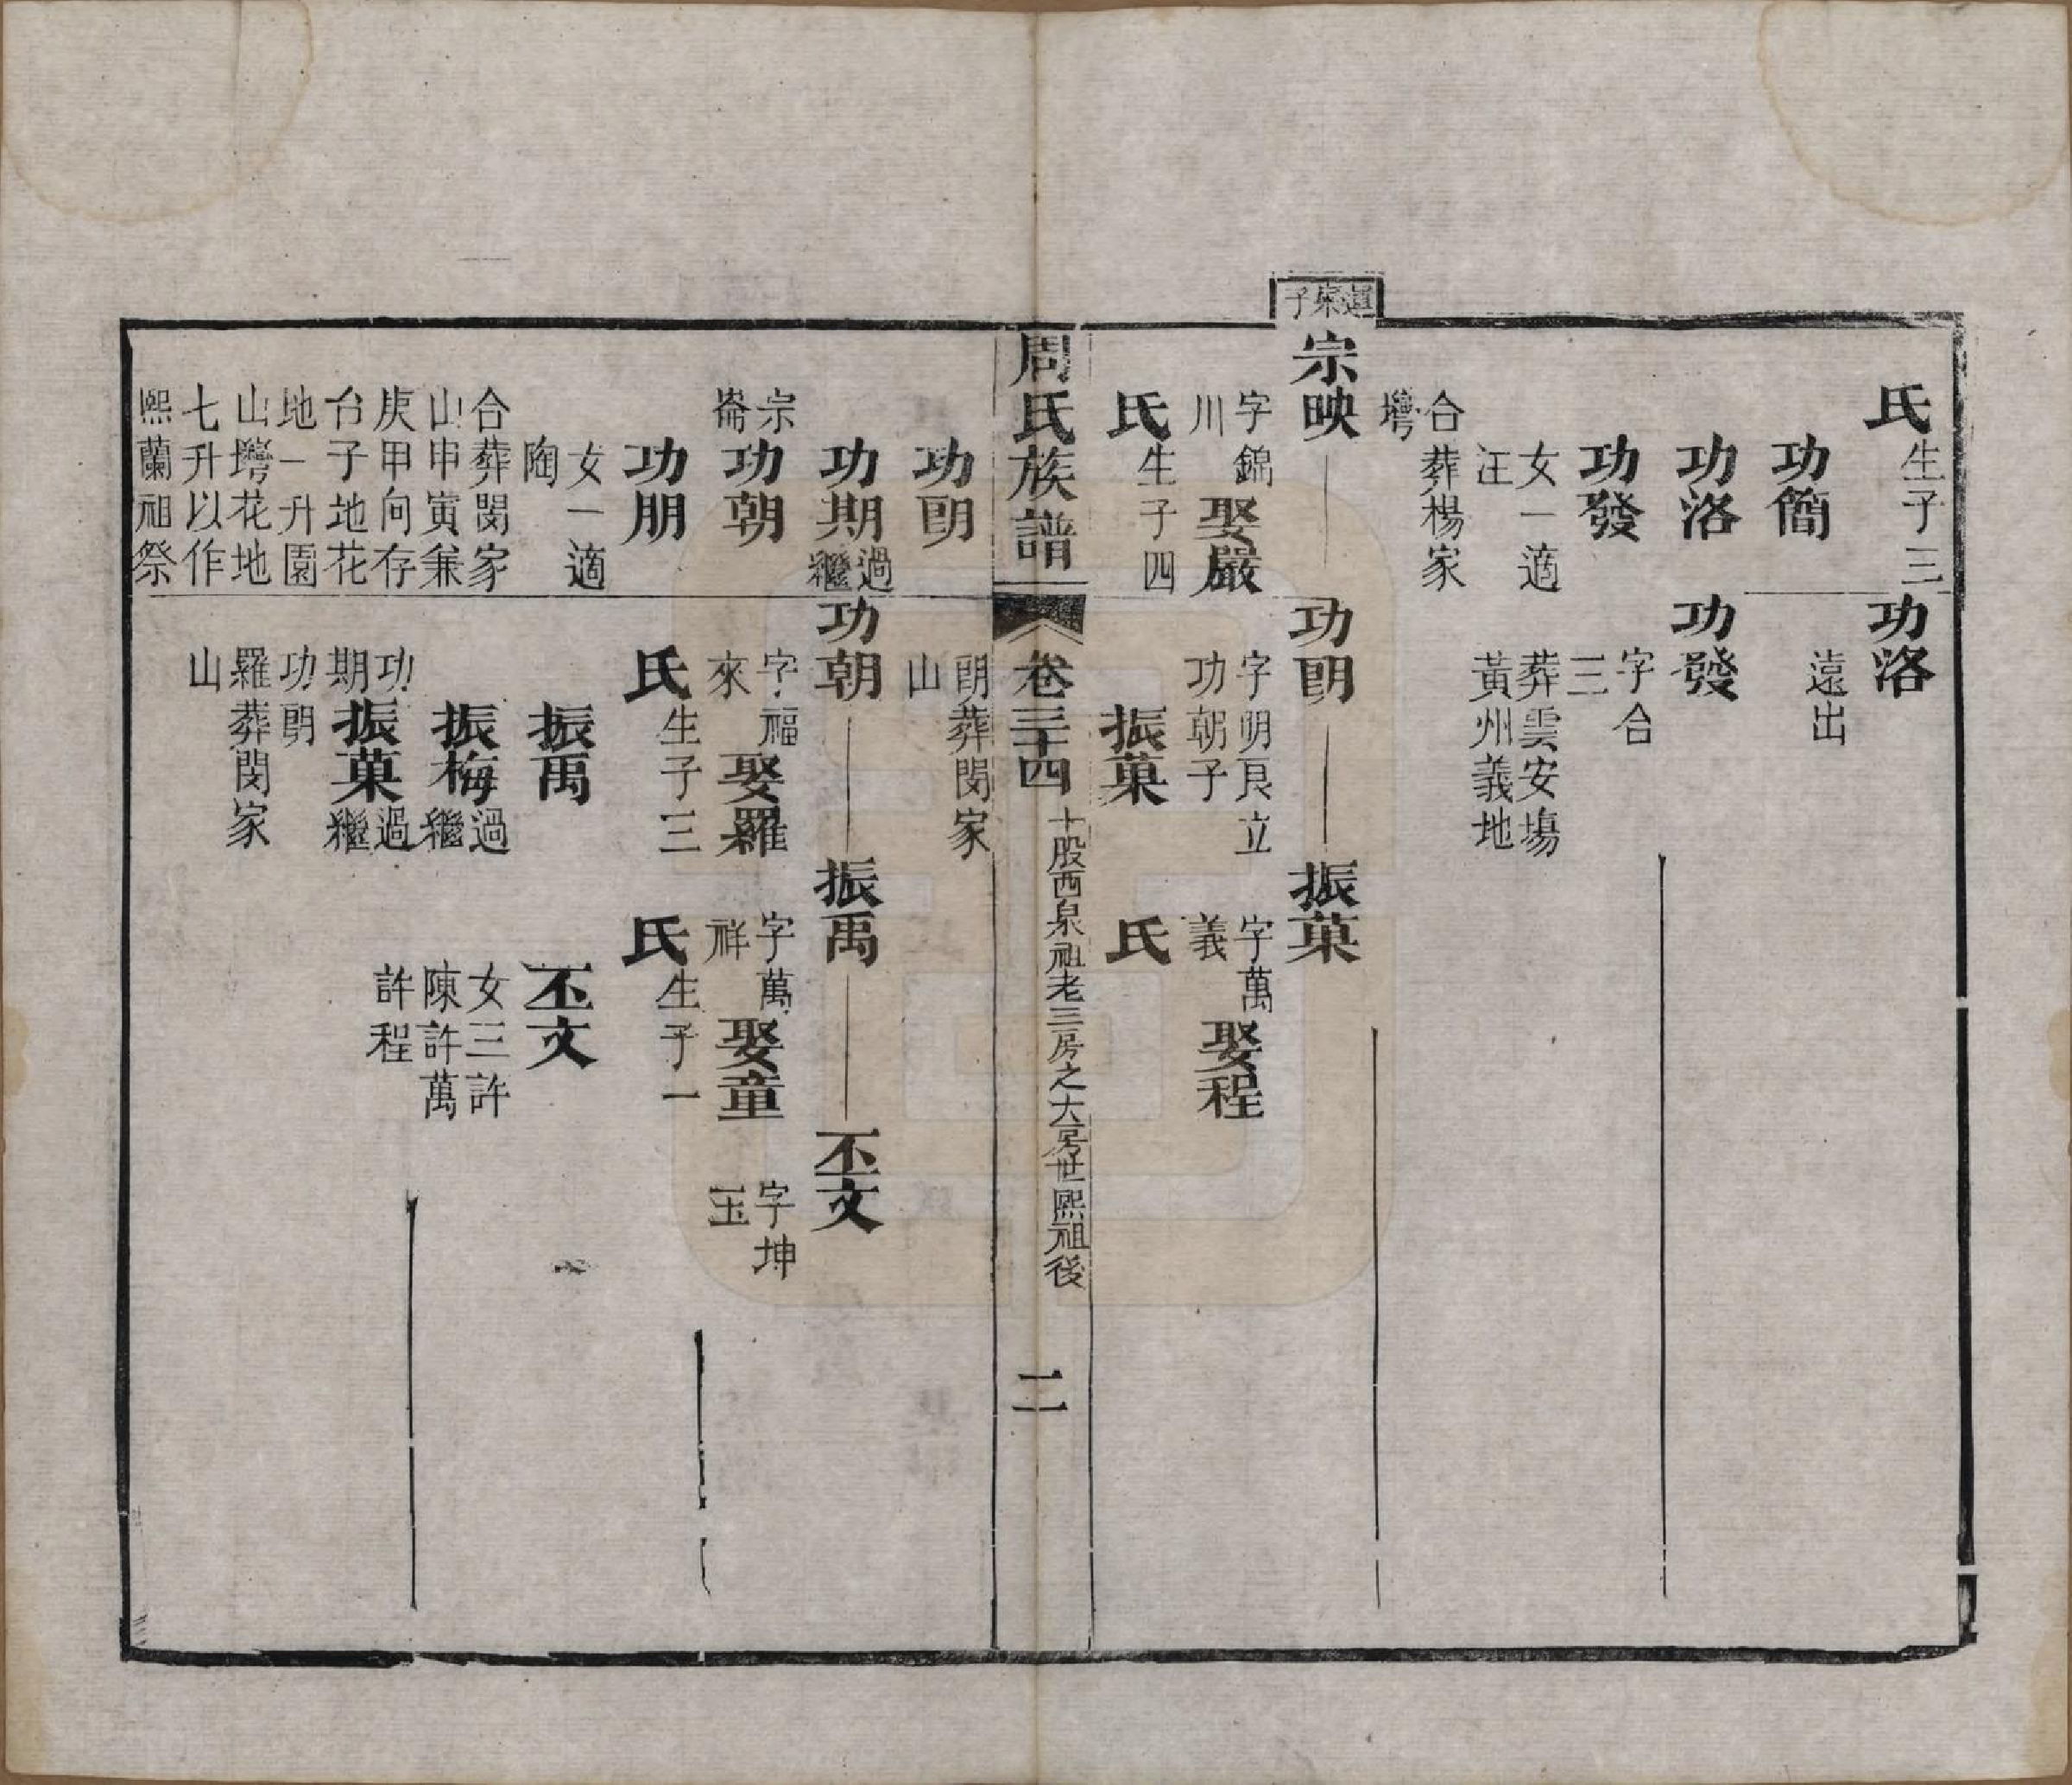 氏生子三
功洛
功簡
遠出
功洛
功發
功發
字合三
女一適汪
葬雲安塲黃州義地
合葬楊家塆
子
宗映
功明
振菓
字錦川
娶嚴
字明良立功朝子
字萬義
娶程
氏生子四
振菓
氏
周氏族譜
卷三十四
十股西泉祖老三房之大房世熙祖後
二
功明
明葬閔家山
功期過繼
功朝
振禹
丕文
宗崙
功朝
字福來
娶羅
字萬祥
娶童
字坤玉
功朋
氏生子三
氏生子一
女一適陶
振禹
丕文
合葬閔家山申寅兼庚甲向存台子地花地一升園山塆花地七升以作熙蘭祖祭
振梅過繼
女三許陳許萬許程
功期
振菓過繼
功明
羅葬閔家山